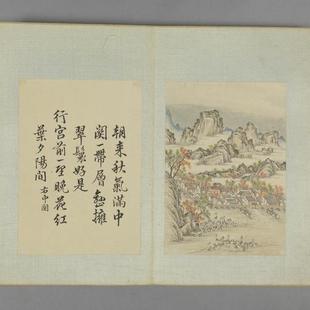 朝来秋氣滿中
関一帶層巒擁
翠鬟好是
行宮前一望晚花紅
葉夕陽間 右中関